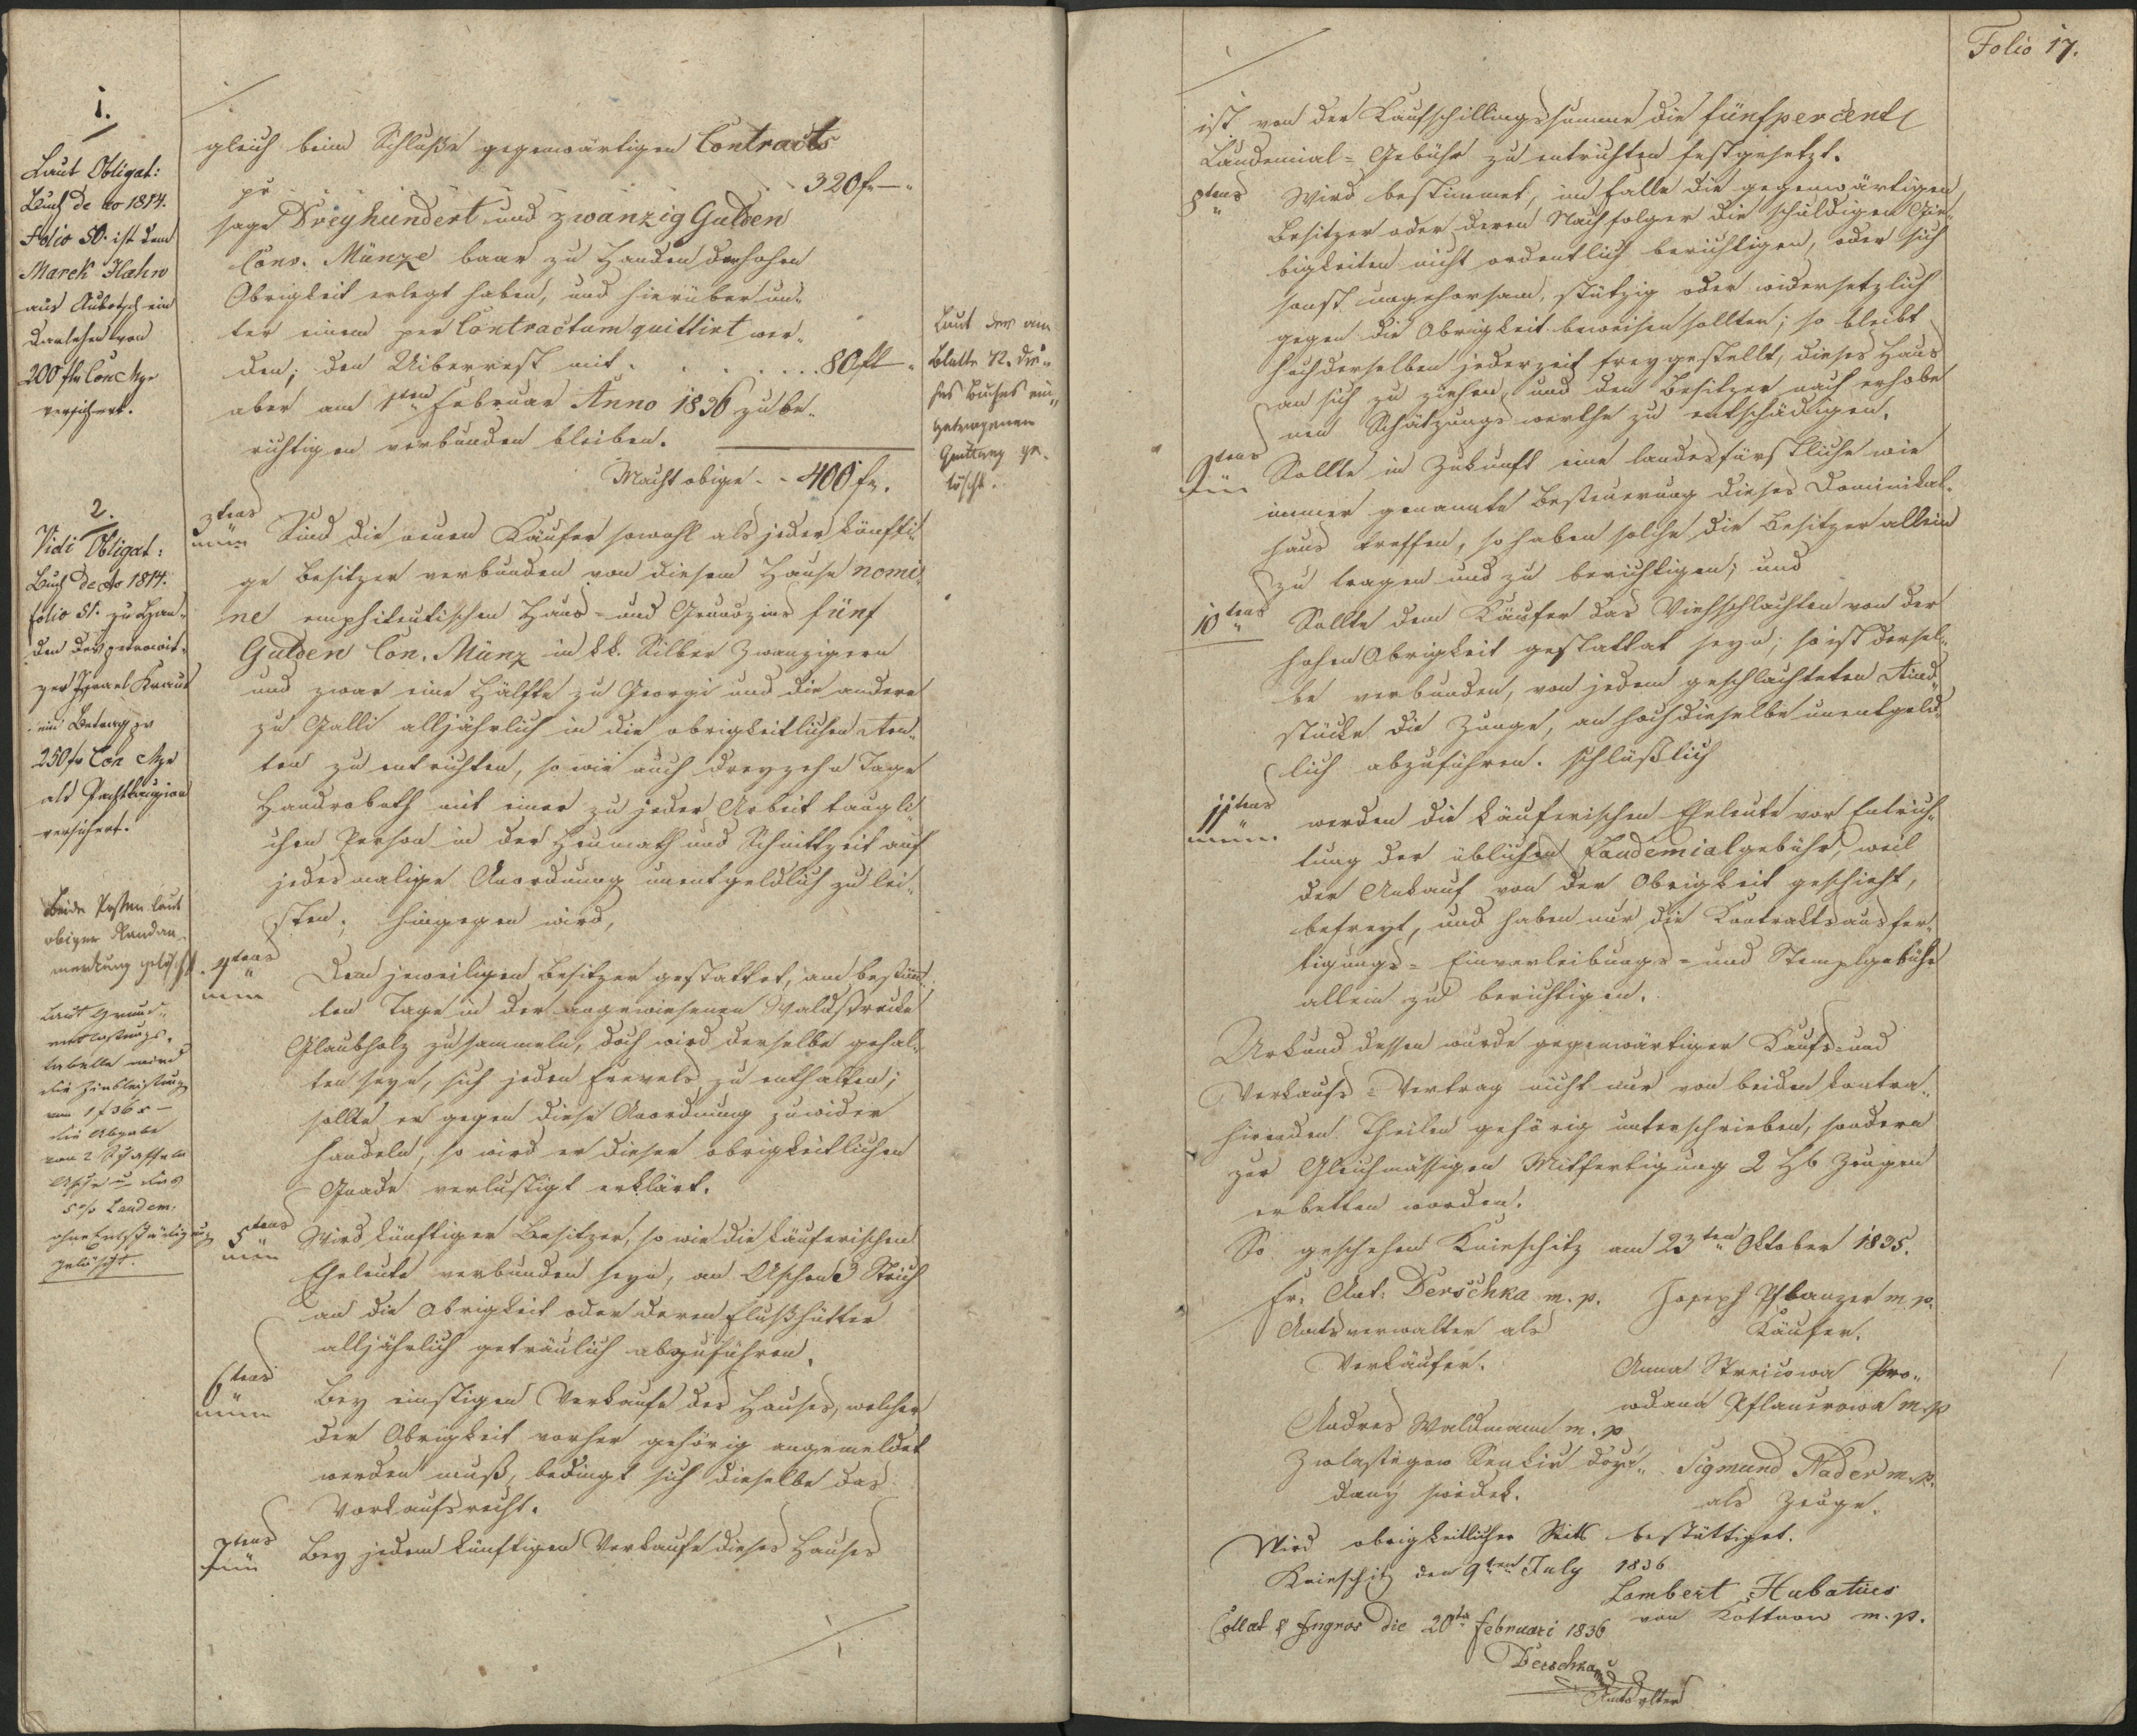 Folio 17.
1.
Laut Obligat:
Buch de ao 1814.
Folio 50. ist dem
Marek Hahn
aus ein
Darlehen von
200 fl Con Mze
versichert.
2.
Vidi Obligat:
Buch de ao 1814.
folio 51. zu Han„
den des
Israel Kraus
ein Betrag pr
250 fr Con Mze
als Pachtkauzion
versichert.
Beide Posten laut
obiger Randan„
merkung gelöscht.
Laut Grund„
entlastungs„
tabelle wird
die Zinsleistung
von 1 f 36 x –
die Abgabe
von 2
Asche u das
5 % Laudem:
ohne Entschädigung
gelöscht.
gleich beim Schluße gegenwärtigen Contracts
pr . . . . . 320 fr —„
sage Dreyhundert und zwanzig Gulden
Conv. Münze baar zu Handen der hohen
Obrigkeit erlegt haben, und hierüber un„
ter einem per Contractum quittirt wer„
den; den Uiberrest mit . . . . . . 80 fl —„
aber am 1ten Februar Anno 1836 zu be„
richtigen verbunden bleiben.
Macht obige . . 400 fr.
3tens Sind die neuen Käufer sowohl als jeder künfti„
ge Besitzer verbunden von diesem Hause nomi„
ne emphiteutischen Haus- und Grundzins fünf
Gulden Con. Münz in kk. Silber Zwanzigern
und zwar eine Hälfte zu Georgi und die andere
zu Galli alljährlich in die obrigkeitlichen Ren„
ten zu entrichten, so wie auch dreyzehn Tage
Handrobath mit einer zu jeder Arbeit taugli„
chen Person in der Heumath und Schnittzeit auf
jedesmalige Anordnung unentgeldlich zu lei„
sten; hingegen wird,
4tens Dem jeweiligen Besitzer gestattet, am bestimm„
ten Tage in der angewiesenen Waldstrecke
Klaubholz zu sammeln, doch wird derselbe gehal„
ten seyn, sich jeden Frevels zu enthalten;
sollte er gegen diese Anordnung zuwider
handeln, so wird er dieser obrigkeitlichen
Gnade verlustigt erklärt.
5tens Wird künftiger Besitzer, so wie die käuferischen
Eheleute verbunden seyn, an Aschen 3 Strich
an die Obrigkeit oder deren Flußhütter
alljährlich getreulich abzuführen.
6tens Bey einstigen Verkaufe des Hauses, welcher
der Obrigkeit vorher gehörig angemeldet
werden muß, bedingt sich dieselbe das
Vorkaufsrecht.
7tens Bey jedem künftigen Verkaufe dieses Hauses
Laut der am
Blatte 72. die„
ses Buches ein„
getragenen
Quittung ge„
löscht.
ist von der Kaufschillingssumme die fünfpercent
Laudemial-Gebühr zu entrichten festgesetzt.
8tens Wird bestimmet, im Falle die gegenwärtigen
Besitzer oder deren Nachfolger die schuldigen Gie„
bigkeiten nicht ordentlich berichtigen, oder sich
sonst ungehorsam, stützig oder widersetzlich
gegen die Obrigkeit beweisen sollten; so bleibt
hochderselben jederzeit freygestellt, dieses Haus
an sich zu ziehen, und den Besitzer nach erhobe„
nen Schätzungswerthe zu entschädigen.
9tens Sollte in Zukunft eine landesfürstliche wie
immer genannte Besteuerung dieses Dominikal„
haus treffen, so haben solche die Besitzer allein
zu tragen und zu berichtigen; und
10tens Sollte dem Käufer das Viehschlachten von der
hohen Obrigkeit gestattet seyn; so ist dersel„
be verbunden, von jedem geschlachteten Rind„
stücke die Zunge, an hochdieselbe unentgeld„
lich abzuführen. Schlüßlich
11tens werden die käuferischen Eheleute vor Entrich„
tung der üblichen Laudemialgebühr, weil
der Ankauf von der Obrigkeit geschieht,
befreyt, und haben nur die Kontraktsausfer„
tigungs- Einverleibungs- und Stemplgebühr
allein zu berichtigen.
Urkund dessen wurde gegenwärtiger Kaufs- und
Verkaufs-Vertrag nicht nur von beiden kontra„
hirenden Theilen gehörig unterschrieben, sondern
zur Gleichmässigen Mitfertigung 2 Hb Zeugen
erbetten worden.
So geschehen Knieschitz am 23ten Oktober 1835.
Fr: Ant: Derschka m. p. Joseph Pflanzer m. p.
Amtsverwalter als Käufer.
Verkäufer. Anna Streicowa Pro„
wdana Pflancrowa m. p
Andres Waldmann m. p
Sigmund Nader m. p.
swedek. als Zeuge.
Wird obrigkeitlicher Seits bestättiget.
Knieschitz den 9ten July 1836
Lambert Hubatius
von Kottnow m. p.
Collat & Ingros die 20ta Februari 1836
Derschka
Amtsvltr